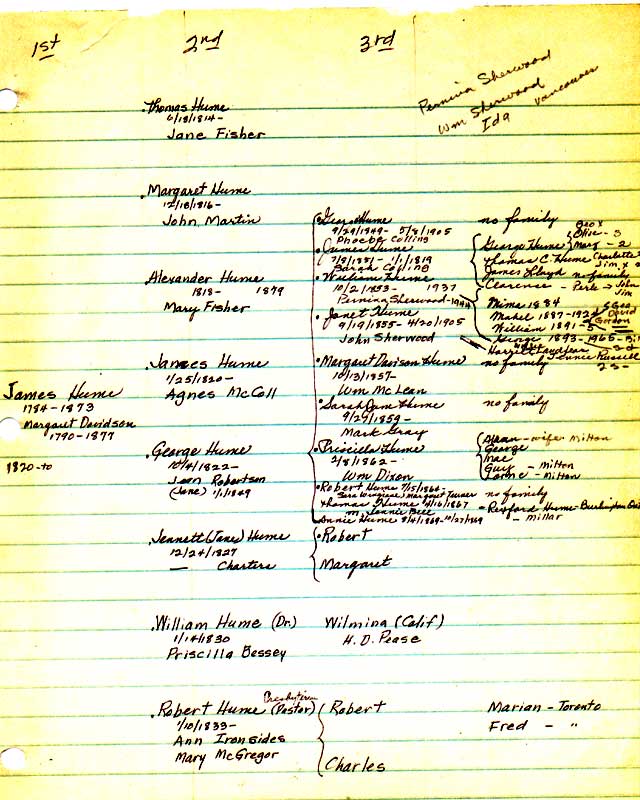 1st
2nd
3rd
Pernina Sherwood
Wm Sherwood
Ida Vancouver
Thomas Hume
6/18/1814-
Jane Fisher
Margaret Hume
12/18/1816-
John Martin
Alexander Hume
1818- 1879
Mary Fisher
James Hume
1784-1873
Margaret Davidson
1790-1877
1820-to
James Hume
1/25/1820-
Agnes McColl
George Hume
10/4/1822-
Jean Robertson
(Jane) 1/1/1849
George Hume no family
9/29/1849- 5/8/1905
Phoebe Collins
James Hume
7/8/1851- 1/1/1919
Sarah Collins
George Hume
Geo X
Olie - 3
Marg - 2
Thomas C. Hume Charlotte
Jim X
James Lloyd no family
Clarence - Park → John
Jim
William Hume
10/2/1853- 1937
Pernina Sherwood-1944
Mime 1884
Mabel 1887-192
William 1891-
George 1893-1965-
Geo
David
Gordon
Janet Hume
9/19/1855- 4/20/1905
John Sherwood
Margaret Davison Hume no family
10/13/1857-
Wm McLean
Sarah Jane Hume no family
9/29/1859-
Mark Gray
Priscilla Hume
2/8/1862-
Wm Dixon
Alean - wife Milton
George
Mae
Guy - Milton
Lorne - Milton
Robert Hume 7/5/1860- no family
Margaret Turner
Thomas Hume 4/16/1867
m. Jennie Bell
Rexford Hume - Burlington
- Millar
Annie Hume 8/4/1869-10/27/1869
Jennett (Jane) Hume
12/24/1827
— Charters
Robert
Margaret
William Hume (Dr.)
1/14/1830
Priscilla Bessey
Wilmina (Calif)
H. D. Pease
Presbyterian
Robert Hume (Pastor)
1/10/1833-
Ann Ironsides
Mary McGregor
Robert
Charles
Marian - Toronto
Fred - "